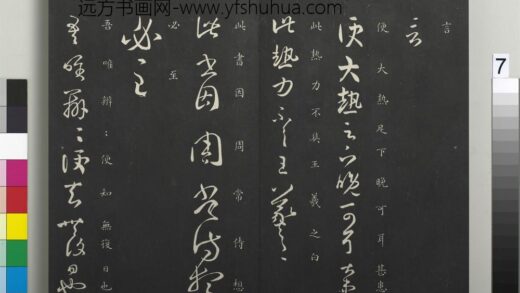 远方书画网-www.yfshuhua.com
7
言
言
便大熱足下晚可耳甚患
便大熱足下晚可耳甚患
此熱力不具王羲之白
此熱力不具王羲之
此書因周常侍想
此書因周常侍想
必至
必至
吾唯辨〻便知無後日也
吾唯辨〻便知無後日也